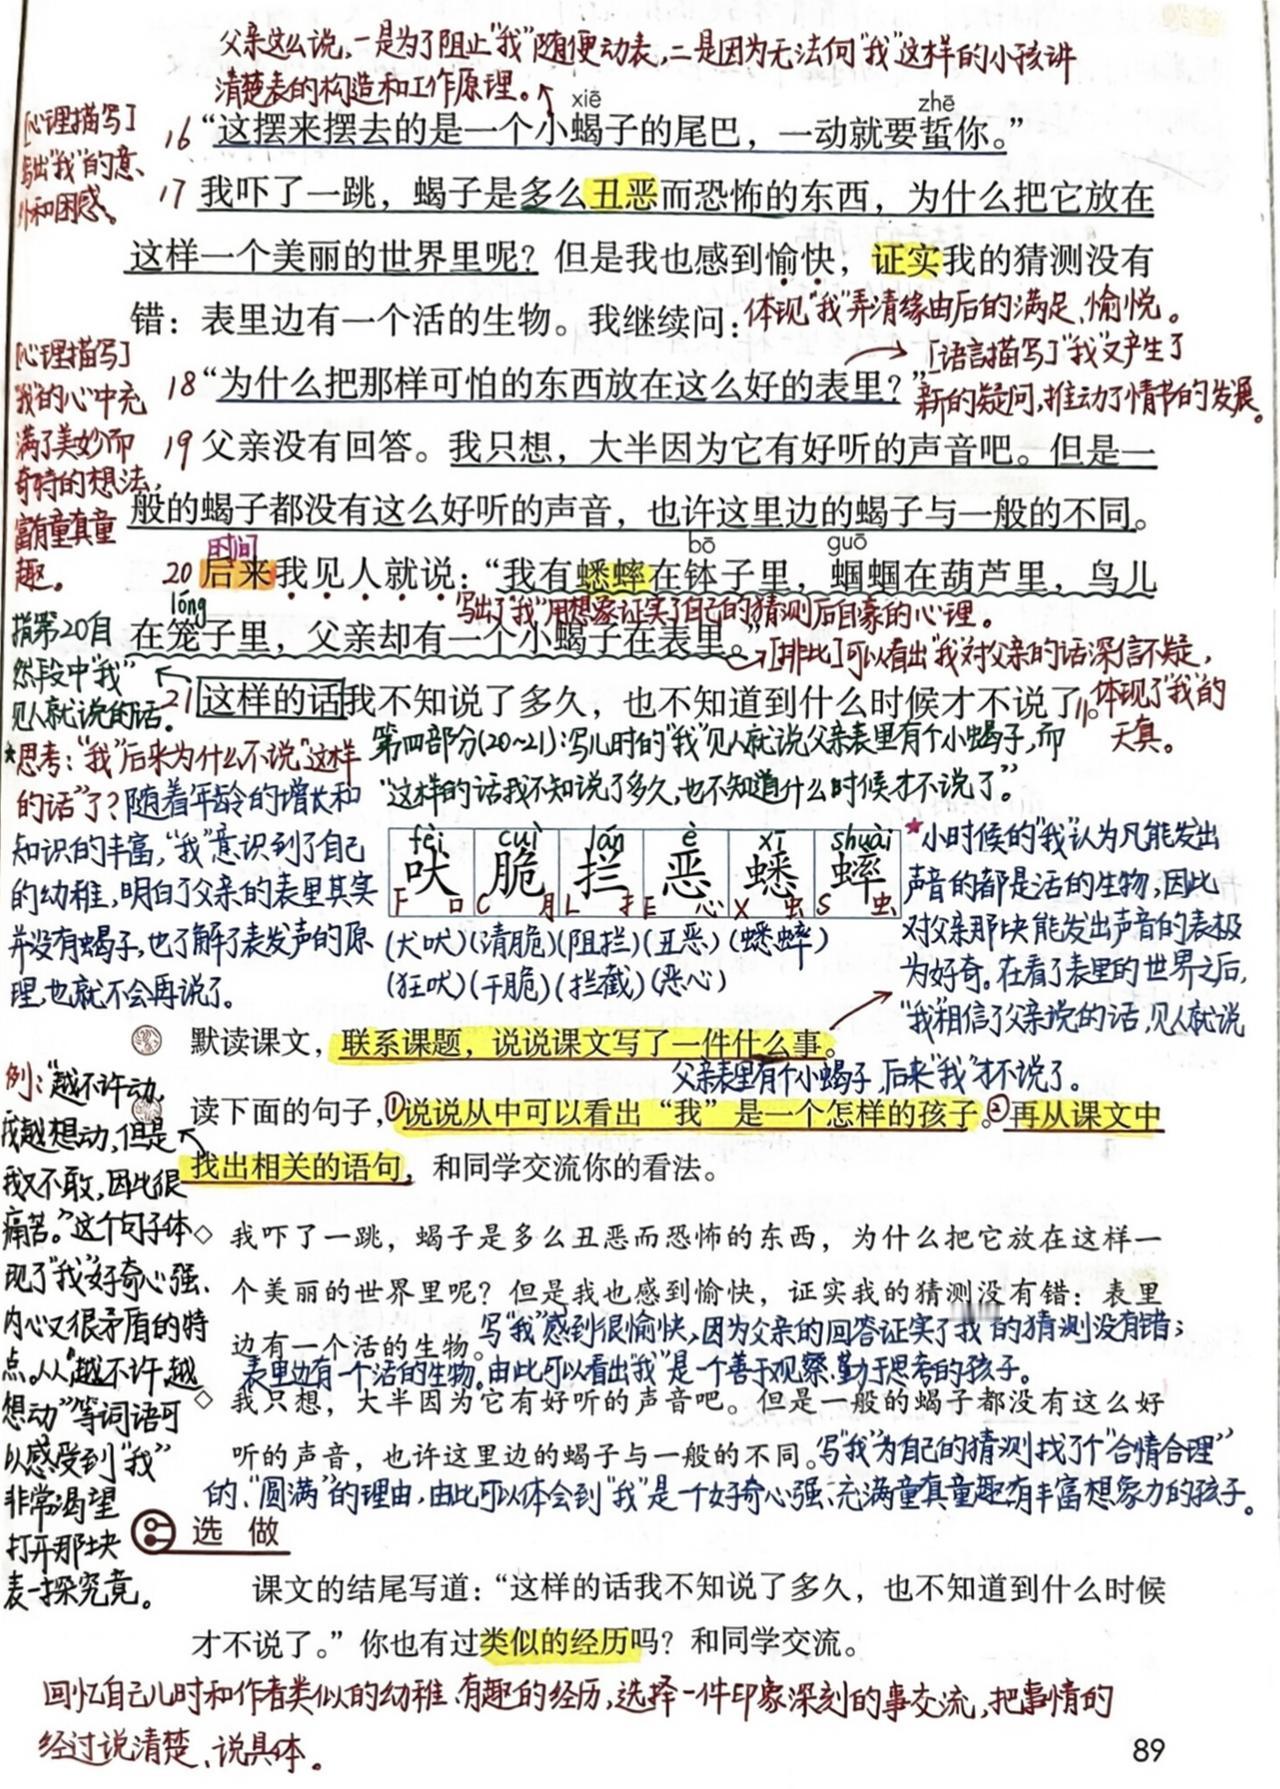 父亲这么说,一是为了阻止“我”随便动表,二是因为无法向“我”这样的小孩讲
清楚表的构造和工作原理。
xiē zhē
[心理描写]
写出“我”的意
外和困惑。
16 “这摆来摆去的是一个小蝎子的尾巴，一动就要蜇你。”
17 我吓了一跳，蝎子是多么丑恶而恐怖的东西，为什么把它放在
这样一个美丽的世界里呢？但是我也感到愉快，证实我的猜测没有
错：表里边有一个活的生物。我继续问：
体现“我”弄清缘由后的满足、愉悦。
[语言描写]“我”又产生了
新的疑问,推动了情节的发展。
18 “为什么把那样可怕的东西放在这么好的表里？”
[心理描写]
“我”的心中充
满了美妙而
奇特的想法,
富有童真童
趣。
19 父亲没有回答。我只想，大半因为它有好听的声音吧。但是一
般的蝎子都没有这么好听的声音，也许这里边的蝎子与一般的不同。
时间 bō guō
20 后来我见人就说：“我有蟋蟀在钵子里，蝈蝈在葫芦里，鸟儿
写出了“我”用想象证实了自己的猜测后自豪的心理。
lóng
在笼子里，父亲却有一个小蝎子在表里。”
[排比]可以看出“我”对父亲的话深信不疑,
体现了“我”的
天真。
指第20自
然段中“我”
见人就说的话。
21 这样的话我不知说了多久，也不知道到什么时候才不说了。
第四部分(20~21):写儿时的“我”见人就说父亲表里有个小蝎子,而
“这样的话我不知说了多久,也不知道什么时候才不说了”
★思考:“我”后来为什么不说“这样
的话”了?随着年龄的增长和
知识的丰富,“我”意识到了自己
的幼稚,明白了父亲的表里其实
并没有蝎子,也了解了表发声的原
理,也就不会再说了。
fèi cuì lán è xī shuài
吠 脆 拦 恶 蟋 蟀
F 口 C 月 L 扌 E 心 X 虫 S 虫
(犬吠)(清脆)(阻拦)(丑恶)(蟋蟀)
(狂吠)(干脆)(拦截)(恶心)
★小时候的“我”认为凡能发出
声音的都是活的生物,因此
对父亲那块能发出声音的表极
为好奇。在看了表里的世界之后,
“我”相信了父亲说的话,见人就说
父亲表里有个小蝎子,后来“我”才不说了。
默读课文，联系课题，说说课文写了一件什么事。
读下面的句子，①说说从中可以看出“我”是一个怎样的孩子。②再从课文中
找出相关的语句，和同学交流你的看法。
例:“越不许动,
我越想动,但是
我又不敢,因此很
痛苦。”这个句子体
现了“我”好奇心强、
内心又很矛盾的特
点。从“越不许,越
想动”等词语可
以感受到“我”
非常渴望
打开那块
表一探究竟。
◇ 我吓了一跳，蝎子是多么丑恶而恐怖的东西，为什么把它放在这样一
个美丽的世界里呢？但是我也感到愉快，证实我的猜测没有错：表里
边有一个活的生物。
写“我”感到很愉快,因为父亲的回答证实了“我”的猜测没有错;
表里边有一个活的生物。由此可以看出“我”是一个善于观察、勤于思考的孩子。
◇ 我只想，大半因为它有好听的声音吧。但是一般的蝎子都没有这么好
听的声音，也许这里边的蝎子与一般的不同。
写“我”为自己的猜测找了个“合情合理”
的、“圆满”的理由,由此可以体会到“我”是一个好奇心强、充满童真童趣、有丰富想象力的孩子。
选做
课文的结尾写道：“这样的话我不知说了多久，也不知道到什么时候
才不说了。”你也有过类似的经历吗？和同学交流。
回忆自己儿时和作者类似的幼稚、有趣的经历,选择一件印象深刻的事交流,把事情的
经过说清楚、说具体。
89